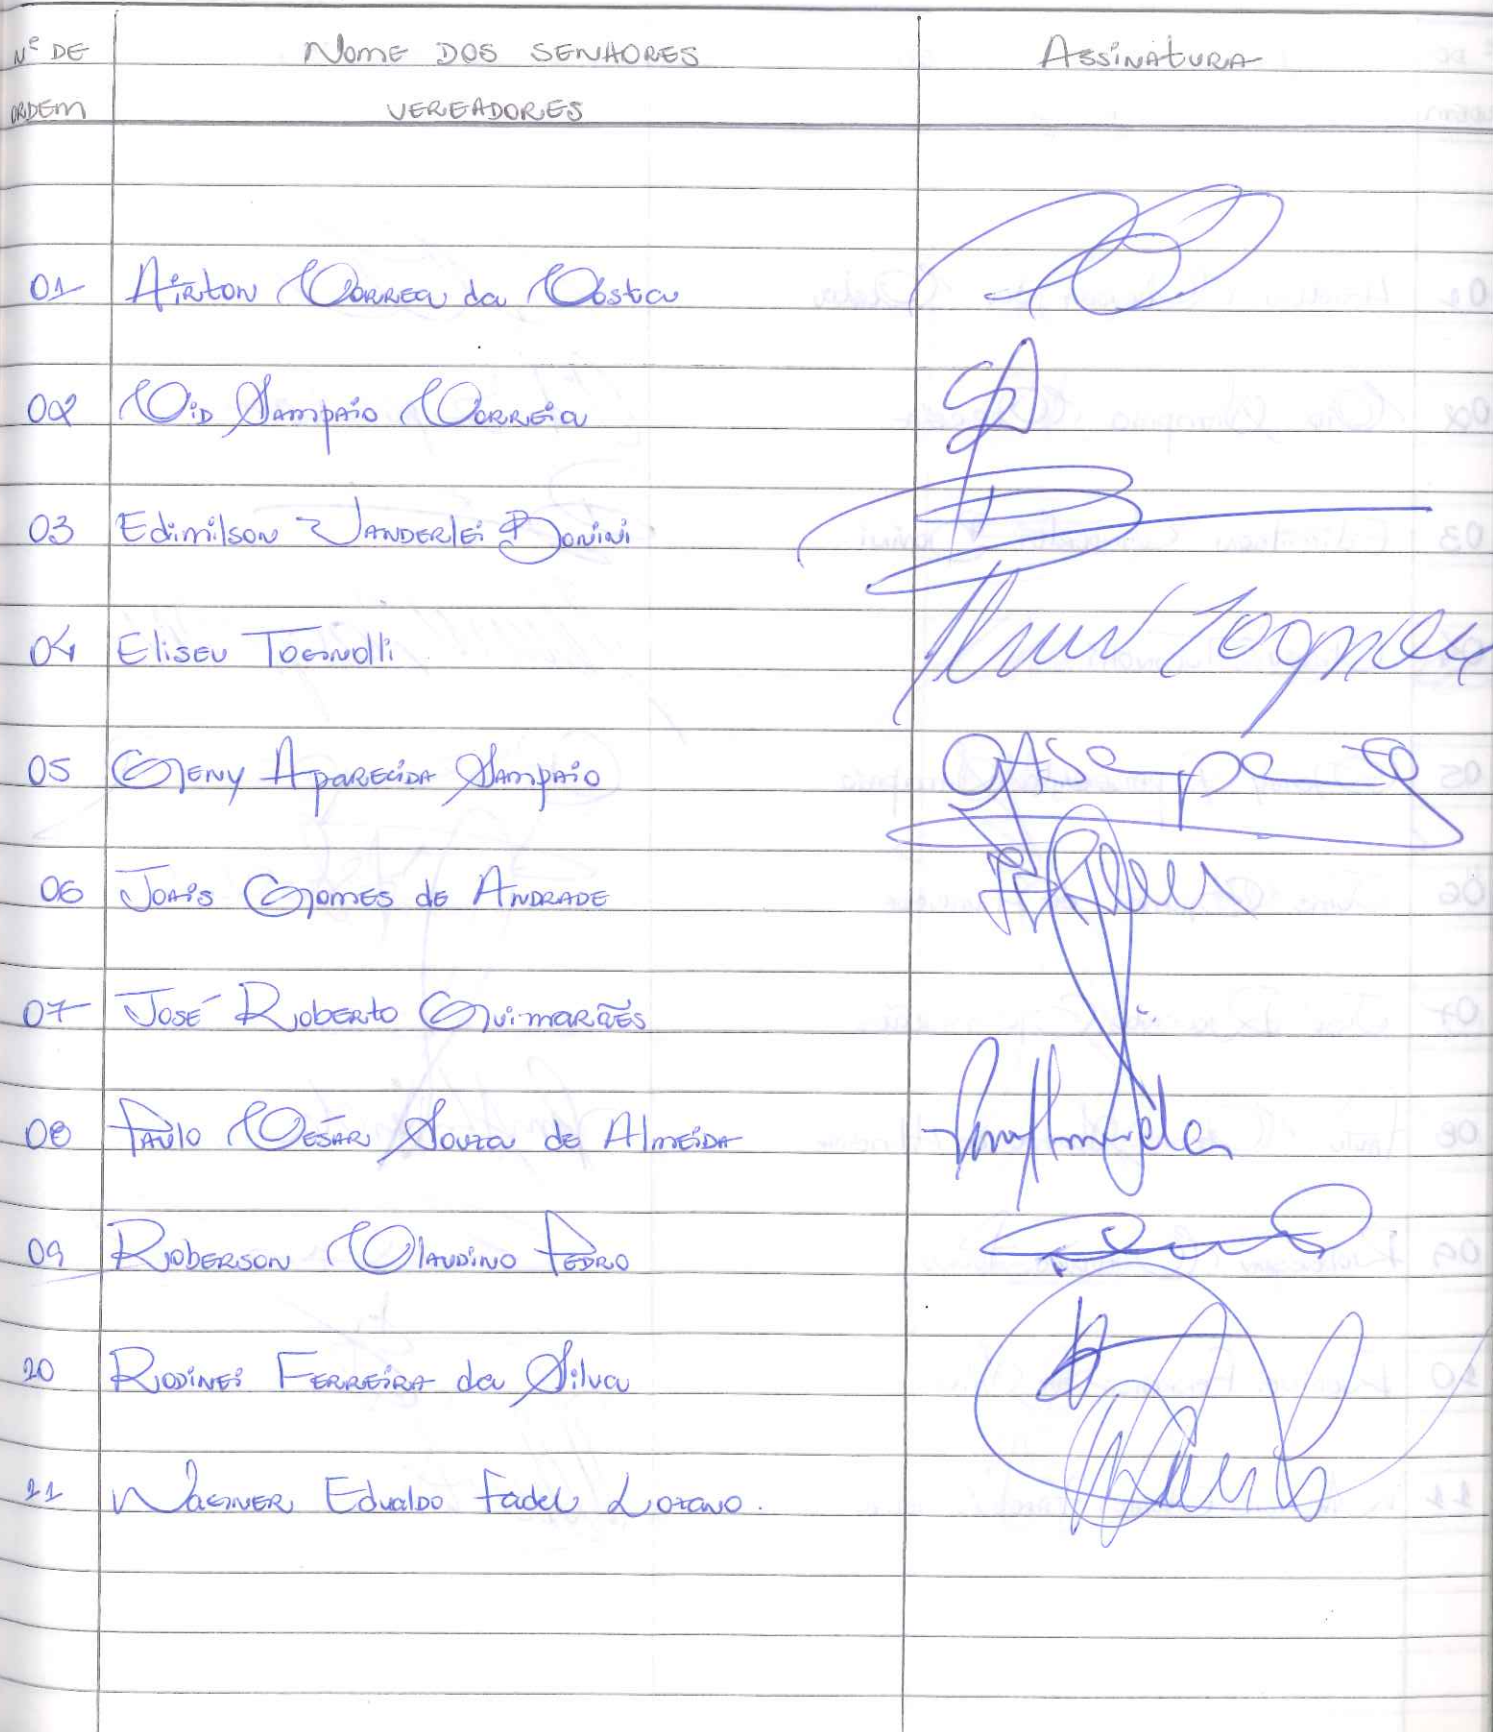 Nº DE NOME DOS SENHORES ASSINATURA
ORDEM VEREADORES
01 Airton Correa da Costa
02 Cid Sampaio Correia
03 Edimilson Vanderlei Bonini
04 Eliseu Tognolli
05 Geny Aparecida Sampaio
06 Joais Gomes de Andrade
07 José Roberto Guimarães
08 Paulo César Souza de Almeida
09 Roberson Claudino Pedro
10 Rodinei Ferreira da Silva
11 Wagner Edualdo Fadel Lozano.